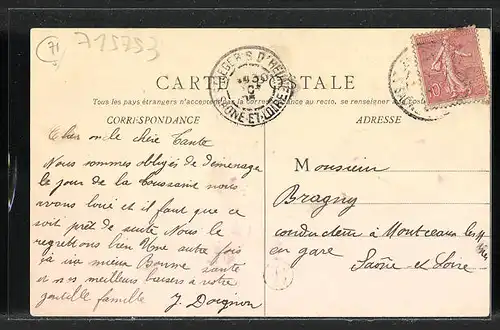 71
715753
CARTE POSTALE
Tous les pays étrangers n'acceptent pas la correspondance au recto, se renseigner à la poste
CORRESPONDANCE
ADRESSE
Cher oncle chère Tante
Nous sommes obligés de déménager
le jour de la Toussaint nous
avons loué et il faut que ce
soit prêt de suite Nous le
regrettons bien Une autre fois
ça ira mieux Bonne santé
et nos meilleurs baisers à votre
gentille famille
J. Doignon
Monsieur
Bragny
conducteur à Montceau les Mines
en gare
Saône-et-Loire
SAONE-ET-LOIRE